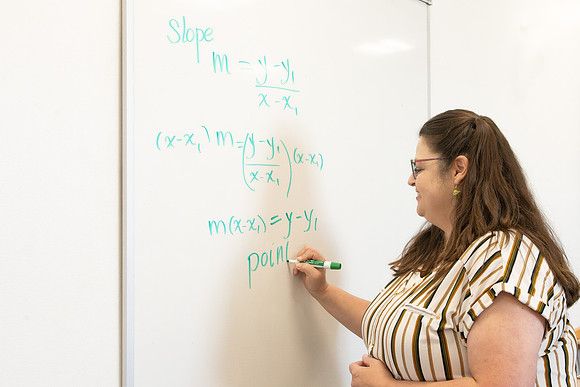 Slope
m = y-y₁/x-x₁
(x-x₁) m = (y-y₁/x-x₁) (x-x₁)
m(x-x₁) = y-y₁
poin